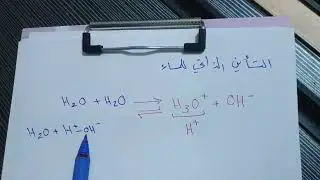 التأين الذاتي للماء
H₂O + H₂O ⇌ H₃O⁺ + OH⁻
H⁺
H₂O + H⁺–OH⁻